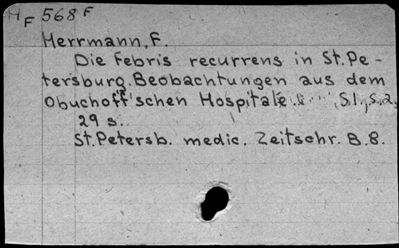 H F 568 F
Herrmann, F.
Die Febris recurrens in St. Pe-
tersburg. Beobachtungen aus dem
Obuchoff'schen Hospitale. S.l., s.a.
29 s.
St. Petersb. medic. Zeitschr. B. 8.